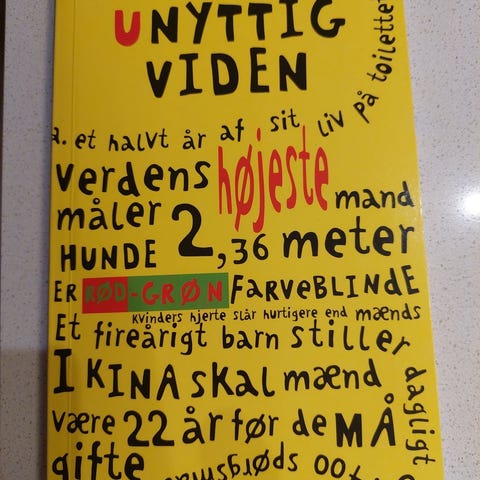 UNYTTIG
VIDEN
a. et halvt år af sit liv på toilettet
verdens højeste mand
måler 2,36 meter
HUNDE
ER RØD-GRØN FARVEBLINDE
Kvinders hjerte slår hurtigere end mænds
Et fireårigt barn stiller dagligt
I KINA skal mænd
være 22 år før de MÅ
gifte